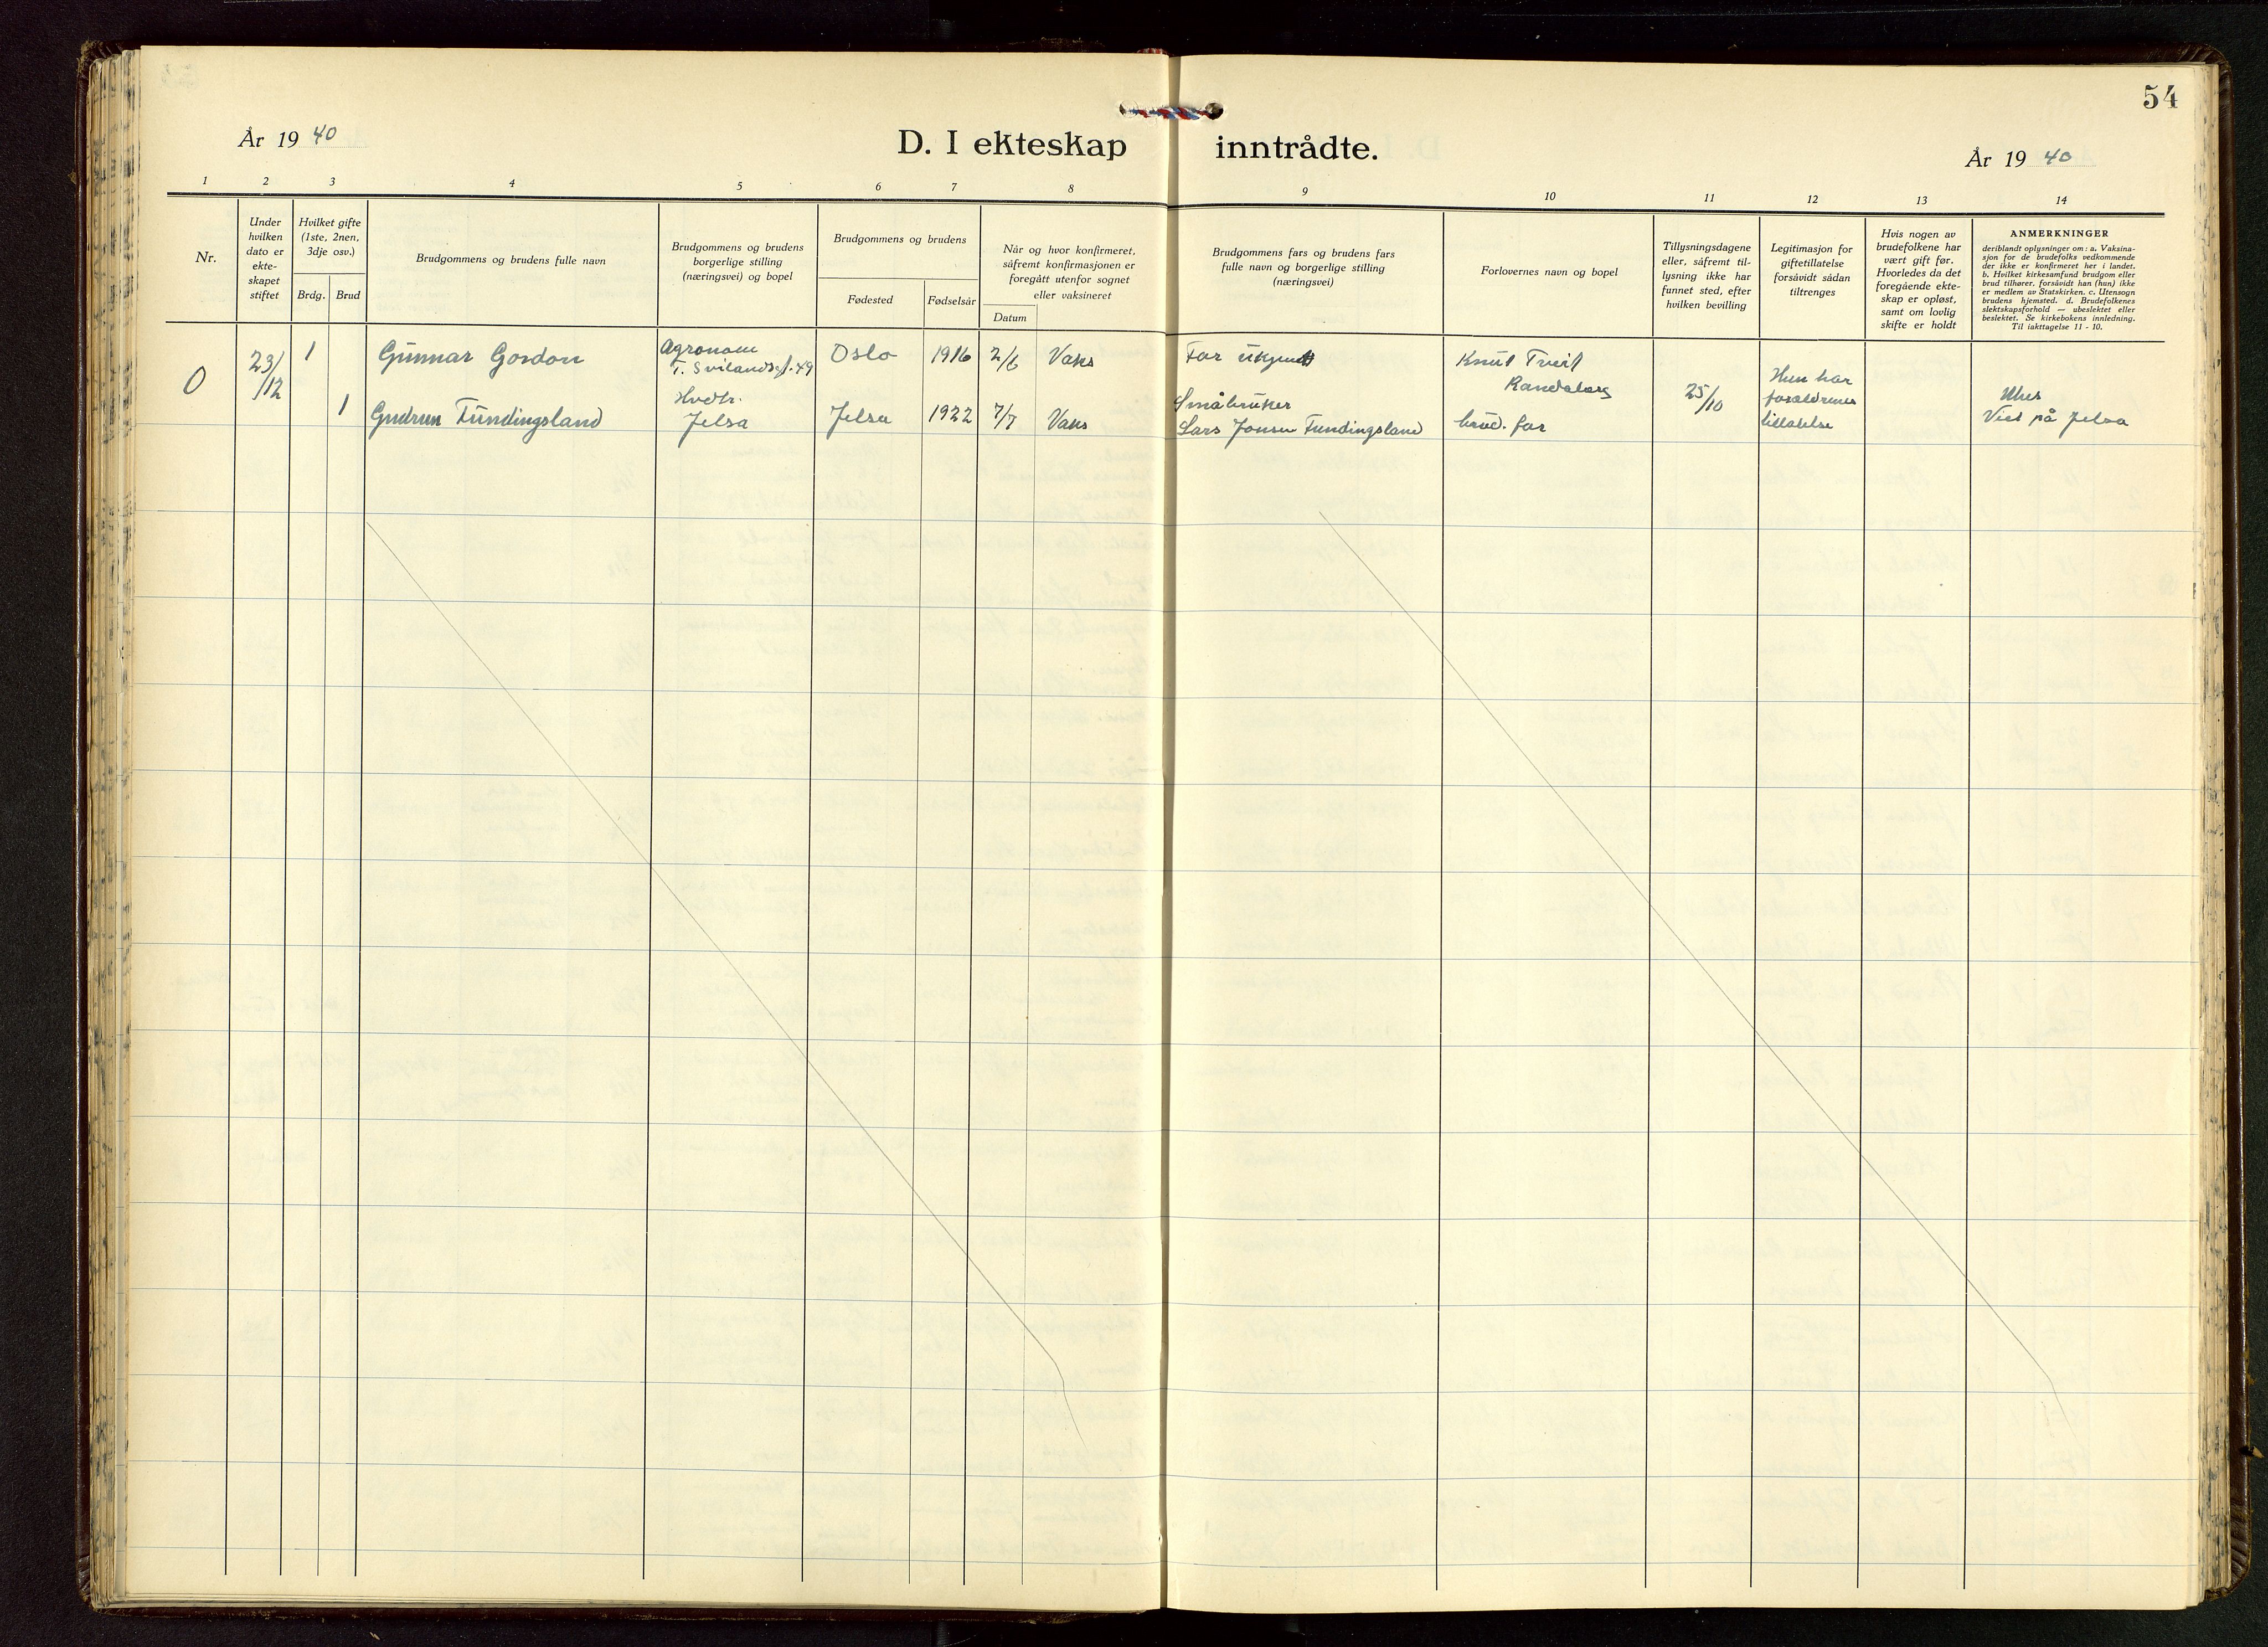 54
År 19 40
D. I ekteskap inntrådte.
År 19 40
1 2 3 4 5 6 7 8 9 10 11 12 13 14
Nr.
Under
hvilken
dato er
ekte-
skapet
stiftet
Hvilket gifte
(1ste, 2nen,
3dje osv.)
Brdg. Brud
Brudgommens og brudens fulle navn
Brudgommens og brudens
borgerlige stilling
(næringsvei) og bopel
Brudgommens og brudens
Fødested Fødselsår
Når og hvor konfirmeret,
såfremt konfirmasjonen er
foregått utenfor sognet
eller vaksineret
Datum
Brudgommens fars og brudens fars
fulle navn og borgerlige stilling
(næringsvei)
Forlovernes navn og bopel
Tillysningsdagene
eller, såfremt til-
lysning ikke har
funnet sted, efter
hvilken bevilling
Legitimasjon for
giftetillatelse
forsåvidt sådan
tiltrenges
Hvis nogen av
brudefolkene har
vært gift før.
Hvorledes da det
foregående ekte-
skap er opløst,
samt om lovlig
skifte er holdt
ANMERKNINGER
deriblandt oplysninger om: a. Vaksina-
sjon for de brudefolks vedkommende
der ikke er konfirmeret her i landet.
b. Hvilket kirkesamfund brudgom eller
brud tilhører, forsåvidt han (hun) ikke
er medlem av Statskirken. c. Utensogn
brudens hjemsted. d. Brudefolkenes
slektskapsforhold — ubeslektet eller
beslektet. Se kirkebokens innledning.
Til iakttagelse 11 - 10.
0
23/
/12
1
Gunnar Gordon
Agronom
T. Svilandsgt. 49
Oslo
1916
2/6
Vaks
Far ukjendt
Knut Tveit
Randaberg
1
Gudrun Tundingsland
Husstr.
Jelsa
Jelsa
1922
7/7
Vaks
Småbruker
Lars Jonsen Tundingsland
brud. far
25/10
Hun har
forældrenes
tillatelse
Ubes
Viet på Jelsa